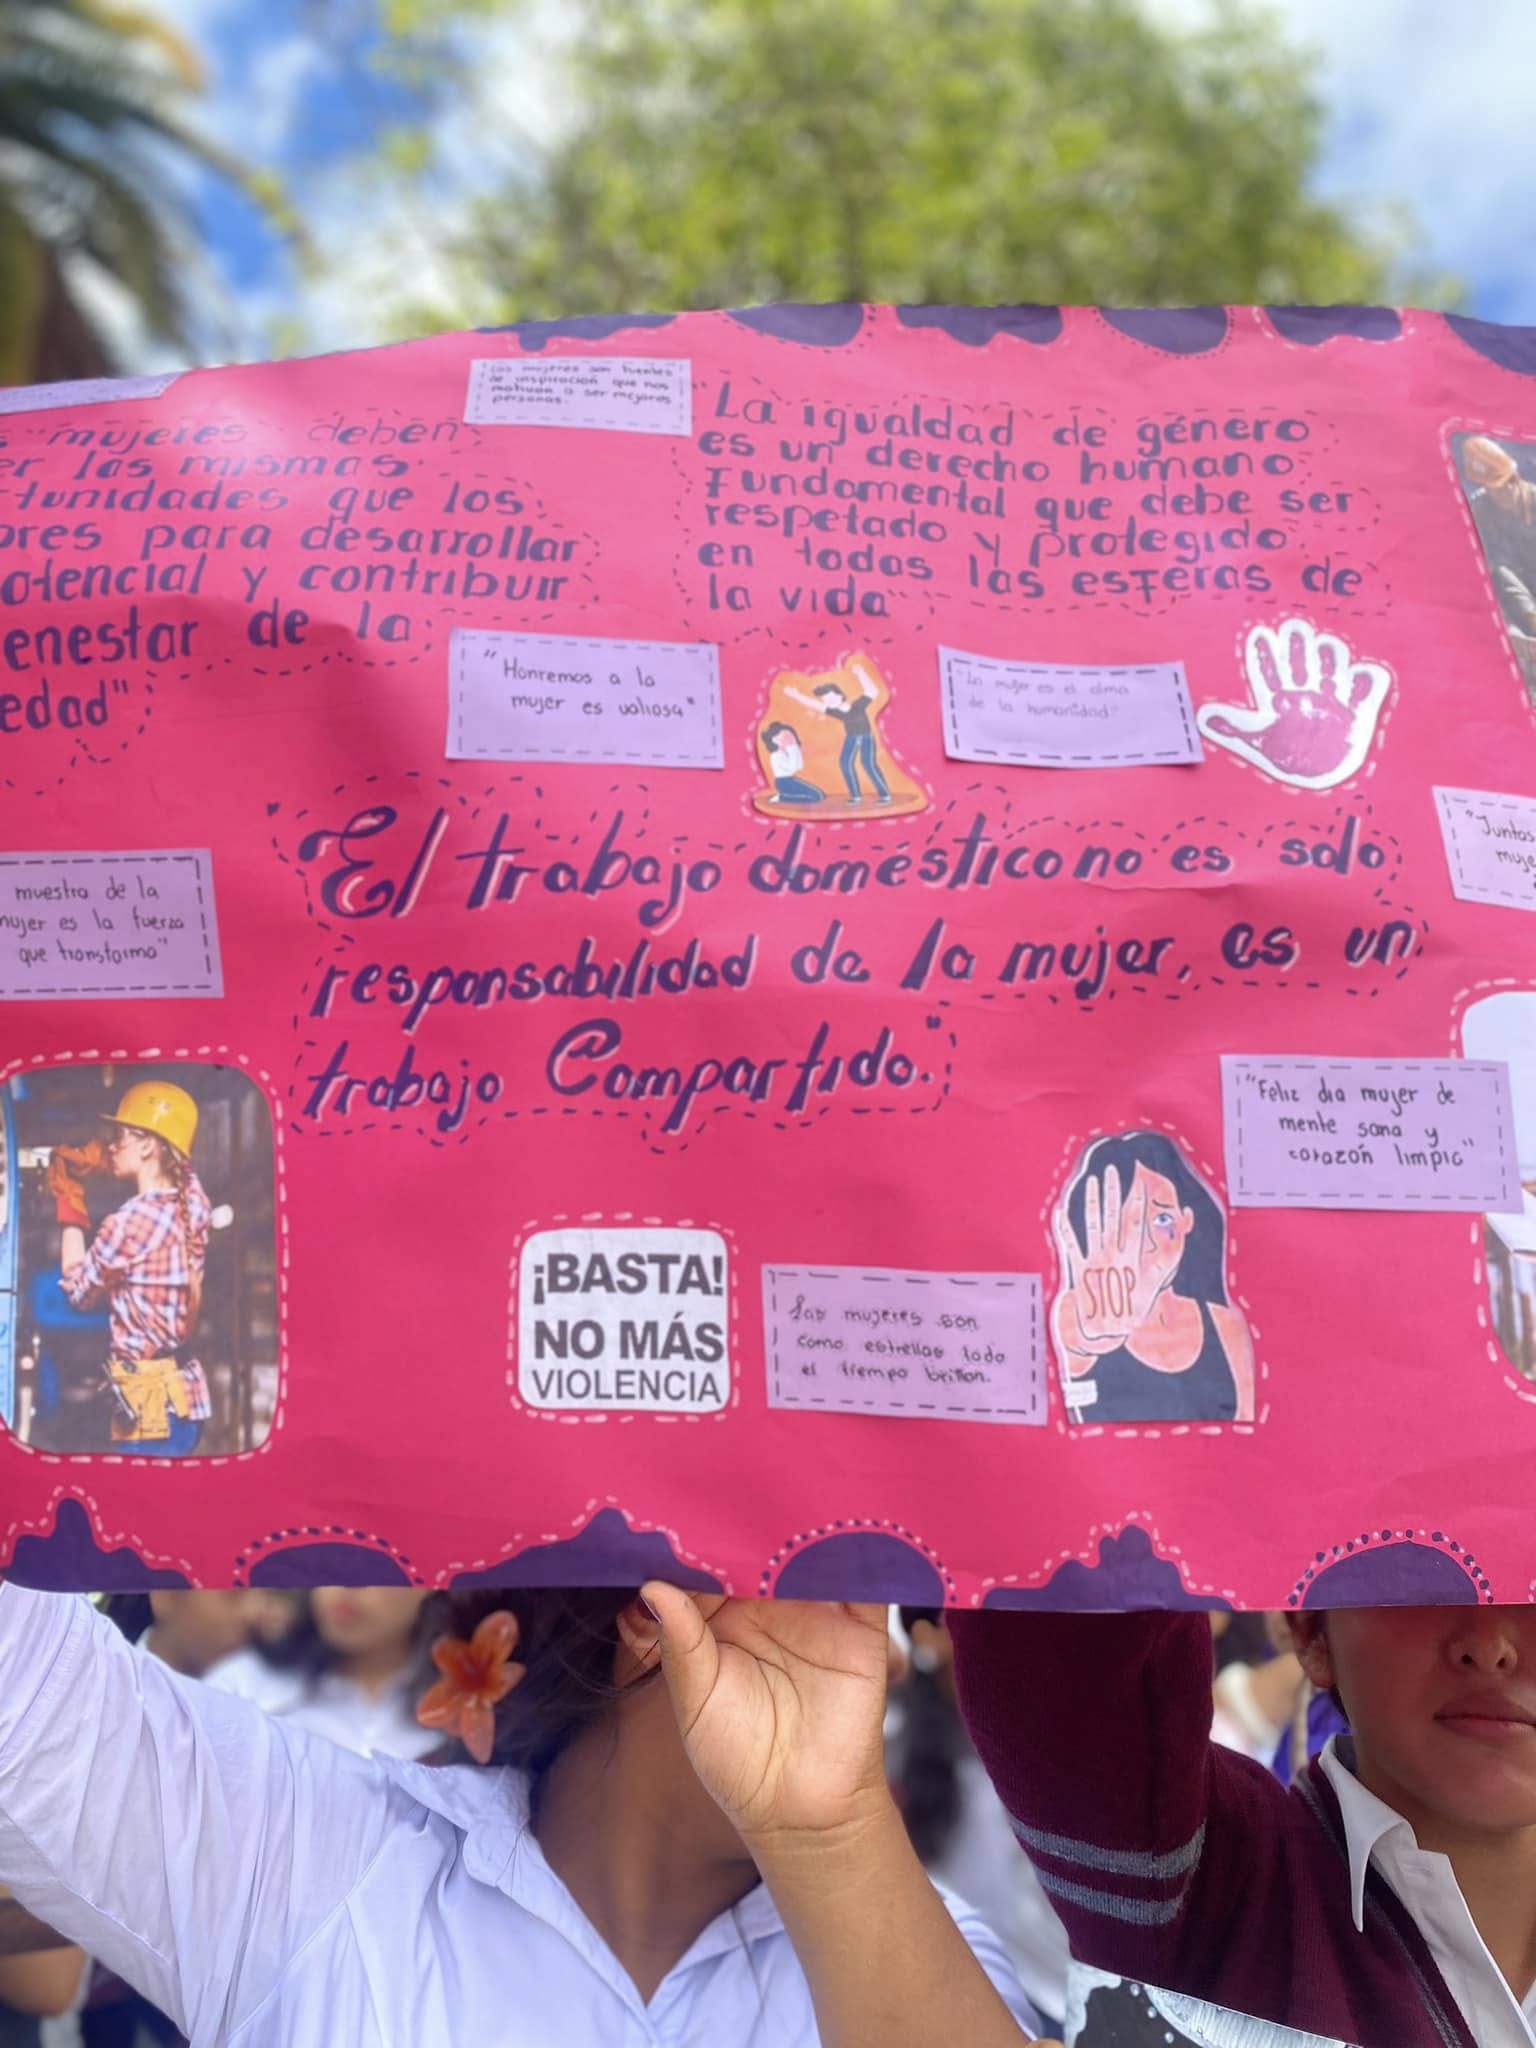 Las mujeres son fuentes
de inspiración que nos
motivan a ser mejores
personas.
mujeres deben
er las mismas
tunidades que los
ores para desarrollar
otencial y contribuir
ienestar de la
edad"
"La igualdad de género
es un derecho humano
fundamental que debe ser
respetado y protegido
en todas las esferas de
la vida"
"Honremos a la
mujer es valiosa"
"La mujer es el alma
de la humanidad"
"El trabajo doméstico no es solo
responsabilidad de la mujer, es un
trabajo Compartido."
muestra de la
mujer es la fuerza
que transforma"
"Juntas
muje
"Feliz dia mujer de
mente sana y
corazón limpio"
¡BASTA!
NO MÁS
VIOLENCIA
Las mujeres son
como estrellas todo
el tiempo brillan.
STOP